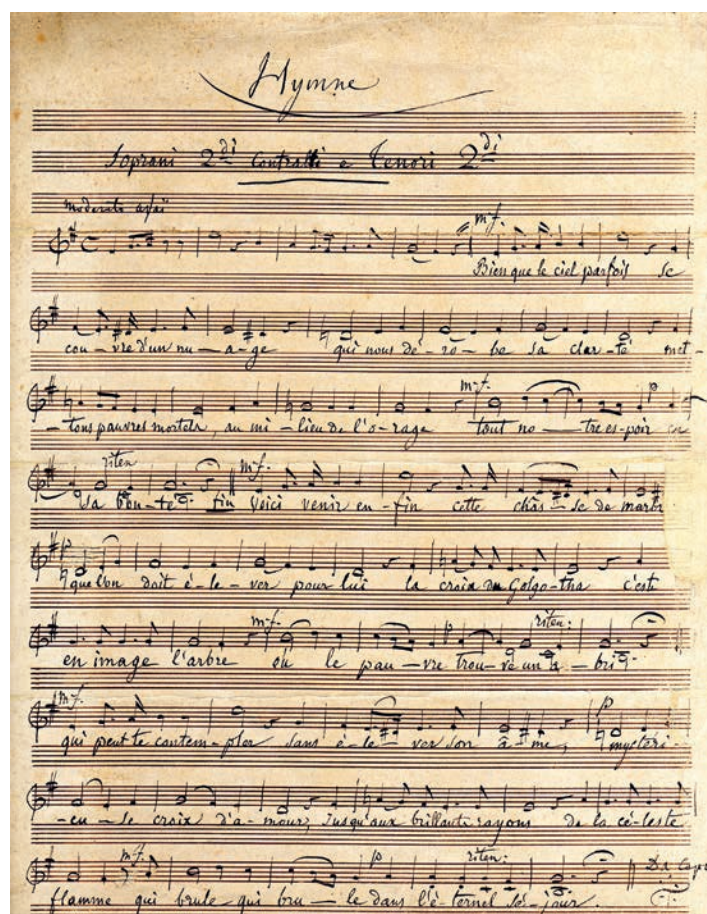 Hymne
Soprani 2di Contralti e Tenori 2di
moderato assai
m.f.
Bien que le ciel parfois se
cou-vre d'un nu-a-ge qui nous dé-ro-be sa clar-té met-
m.f. p
-tons pauvres mortels, au mi-lieu de l'o-rage tout no-tre es-poir en
riten m.f.
sa bon-té. fin Voici venir en-fin cette châs-se de marbr
p
que l'on doit é-le-ver pour lui la croix du Golgo-tha c'est
m.f. p riten:
en image l'arbre où le pau-vre trou-ve un a-bri.
m.f. p
qui peut te contem-pler sans é-le-ver son â-me, mystéri-
-eu-se croix d'a-mour, Jusqu'aux brillants rayons de la cé-leste
m.f. p riten: D.al Capo
flamme qui brule qui bru-le dans l'é-ternel sé-jour.